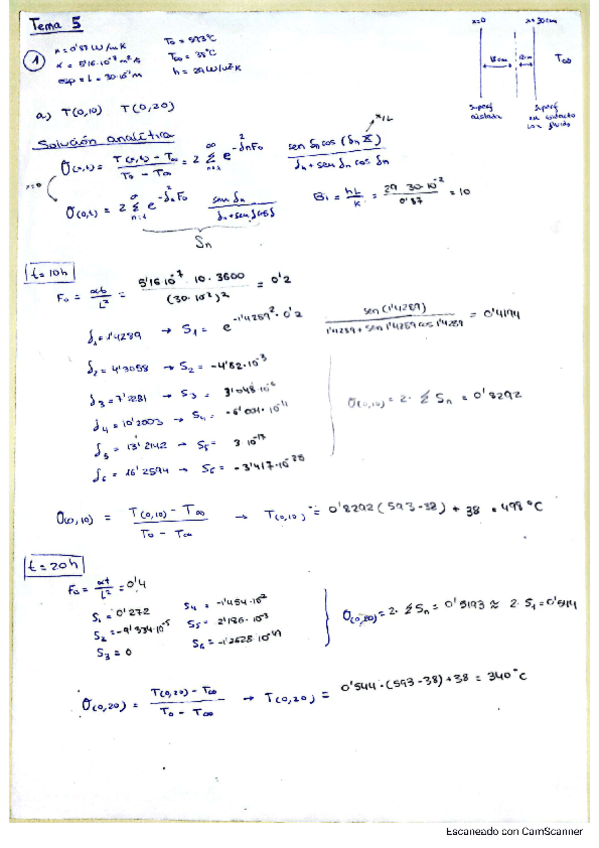 Tema 5
1
k = 0'87 W/mK   T₀ = 593°C
α = 5'16·10⁻⁷ m²/s   T∞ = 38°C
esp = L = 30·10⁻² m   h = 29 W/m²K
x=0   x=30cm
T∞
Superf aislada   Superf en contacto con fluido
a) T(0,10)   T(0,20)
Solución analítica
θ(x,t) = (T(x,t) - T∞)/(T₀ - T∞) = 2 Σ n=1 ∞ e^(-δn² Fo) · (sen δn cos (δn X))/(δn + sen δn cos δn)
x/L
x=0
θ(0,t) = 2 Σ n=1 ∞ e^(-δn² Fo) (sen δn)/(δn + sen δ cos δ)
Sn
Bi = hL/k = (29 · 30·10⁻²)/0'87 = 10
t = 10h
Fo = αt/L² = (5'16·10⁻⁷ · 10 · 3600)/(30·10⁻²)² = 0'2
δ₁ = 1'4289 → S₁ = e^(-1'4289² · 0'2) · sen(1'4289)/(1'4289 + sen 1'4289 cos 1'4289) = 0'4194
δ₂ = 4'3058 → S₂ = -4'82·10⁻³
δ₃ = 7'2281 → S₃ =
δ₄ = 10'2003 → S₄ =
δ₅ = 13'2142 → S₅ =
δ₆ = 16'2594 → S₆ =
θ(0,10) = 2· Σ Sn = 0'8292
θ(0,10) = (T(0,10) - T∞)/(T₀ - T∞) → T(0,10) = 0'8292 (593 - 38) + 38 = 498°C
t = 20h
Fo = αt/L² = 0'4
S₁ = 0'272   S₄ =
S₂ =   S₅ =
S₃ = 0   S₆ =
θ(0,20) = 2· Σ Sn =
θ(0,20) = (T(0,20) - T∞)/(T₀ - T∞) → T(0,20) = 0'544 · (593 - 38) + 38 = 340°C
Escaneado con CamScanner